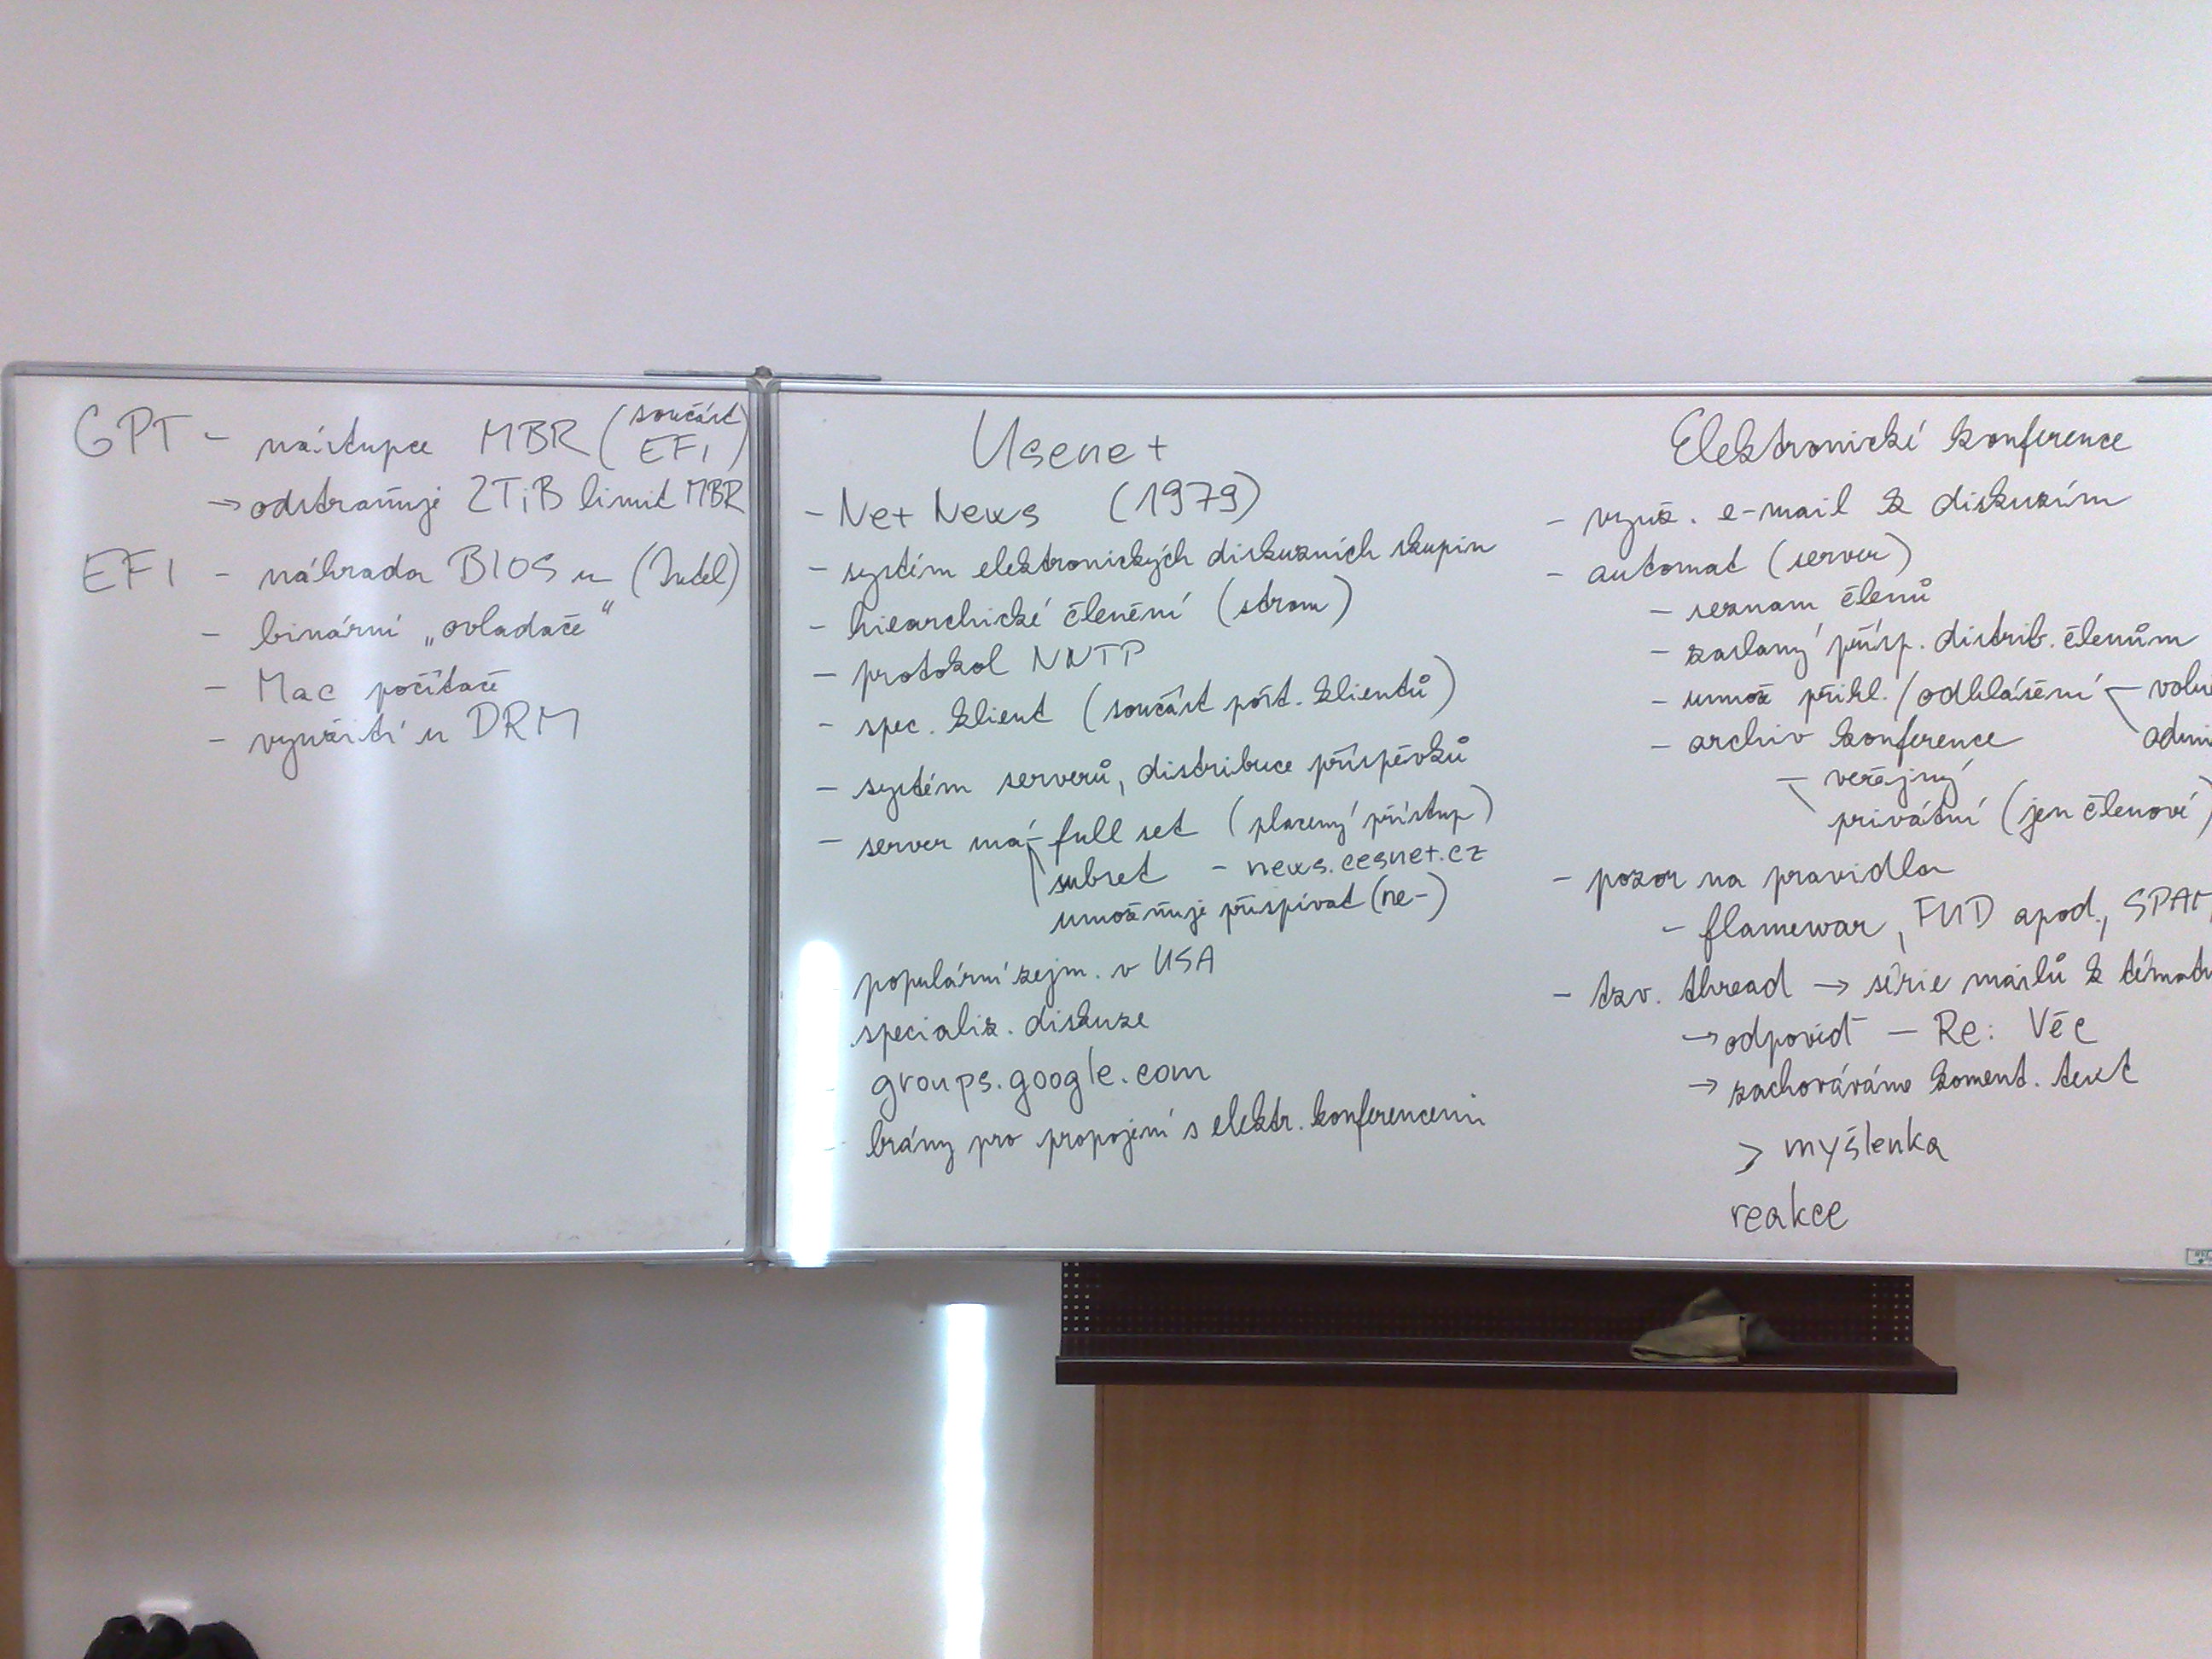 GPT - nástupce MBR (součást EFI)
→ odstraňuje 2TiB limit MBR
EFI - náhrada BIOSu (Intel)
- binární „ovladače“
- Mac počítače
- využití u DRM
Usenet
- Net News (1979)
- systém elektronických diskuzních skupin
- hiearchické členění (strom)
- protokol NNTP
- spec. klient (součást pošt. klientů)
- systém serverů, distribuce příspěvků
- server má - full set (placený přístup)
subset - news.cesnet.cz
umožňuje přispívat (ne-)
populární zejm. v USA
specializ. diskuze
groups.google.com
brány pro propojení s elektr. konferencemi
Elektronické konference
- využ. e-mail k diskuzím
- automat (server)
- seznam členů
- zaslaný přísp. distrib. členům
- umož přihl./odhlášení - voln
admi
- archiv konference
- veřejný
privátní (jen členové)
- pozor na pravidla
- flamewar, FUD apod., SPAM
- tzv. thread → série mailů k tématu
→ odpověď - Re: Věc
→ zachováváme koment. text
> myšlenka
reakce